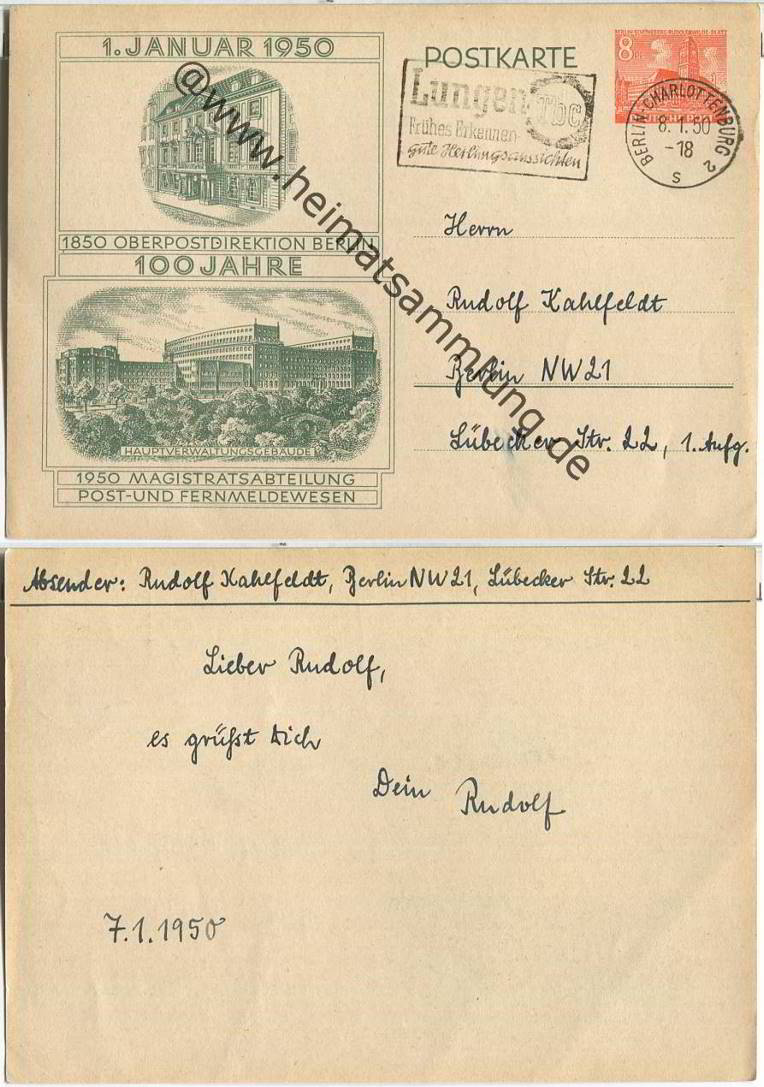 1. JANUAR 1950
1850 OBERPOSTDIREKTION BERLIN
100 JAHRE
HAUPTVERWALTUNGSGEBÄUDE
1950 MAGISTRATSABTEILUNG
POST-UND FERNMELDEWESEN
POSTKARTE
BERLIN-SCHÖNEBERG·RUDOLF-WILDE-PLATZ
8 Pf
Lungen Tbc
Frühes Erkennen-
gute Heilungsaussichten
BERLIN-CHARLOTTENBURG 2
8.1.50
-18
S
Herrn
Rudolf Kahlfeldt
Berlin NW 21
Lübecker Str. 22, 1. Aufg.
@www.heimatsammlung.de
Absender: Rudolf Kahlfeldt, Berlin NW 21, Lübecker Str. 22
Lieber Rudolf,
es grüßt Dich
Dein Rudolf
7.1.1950